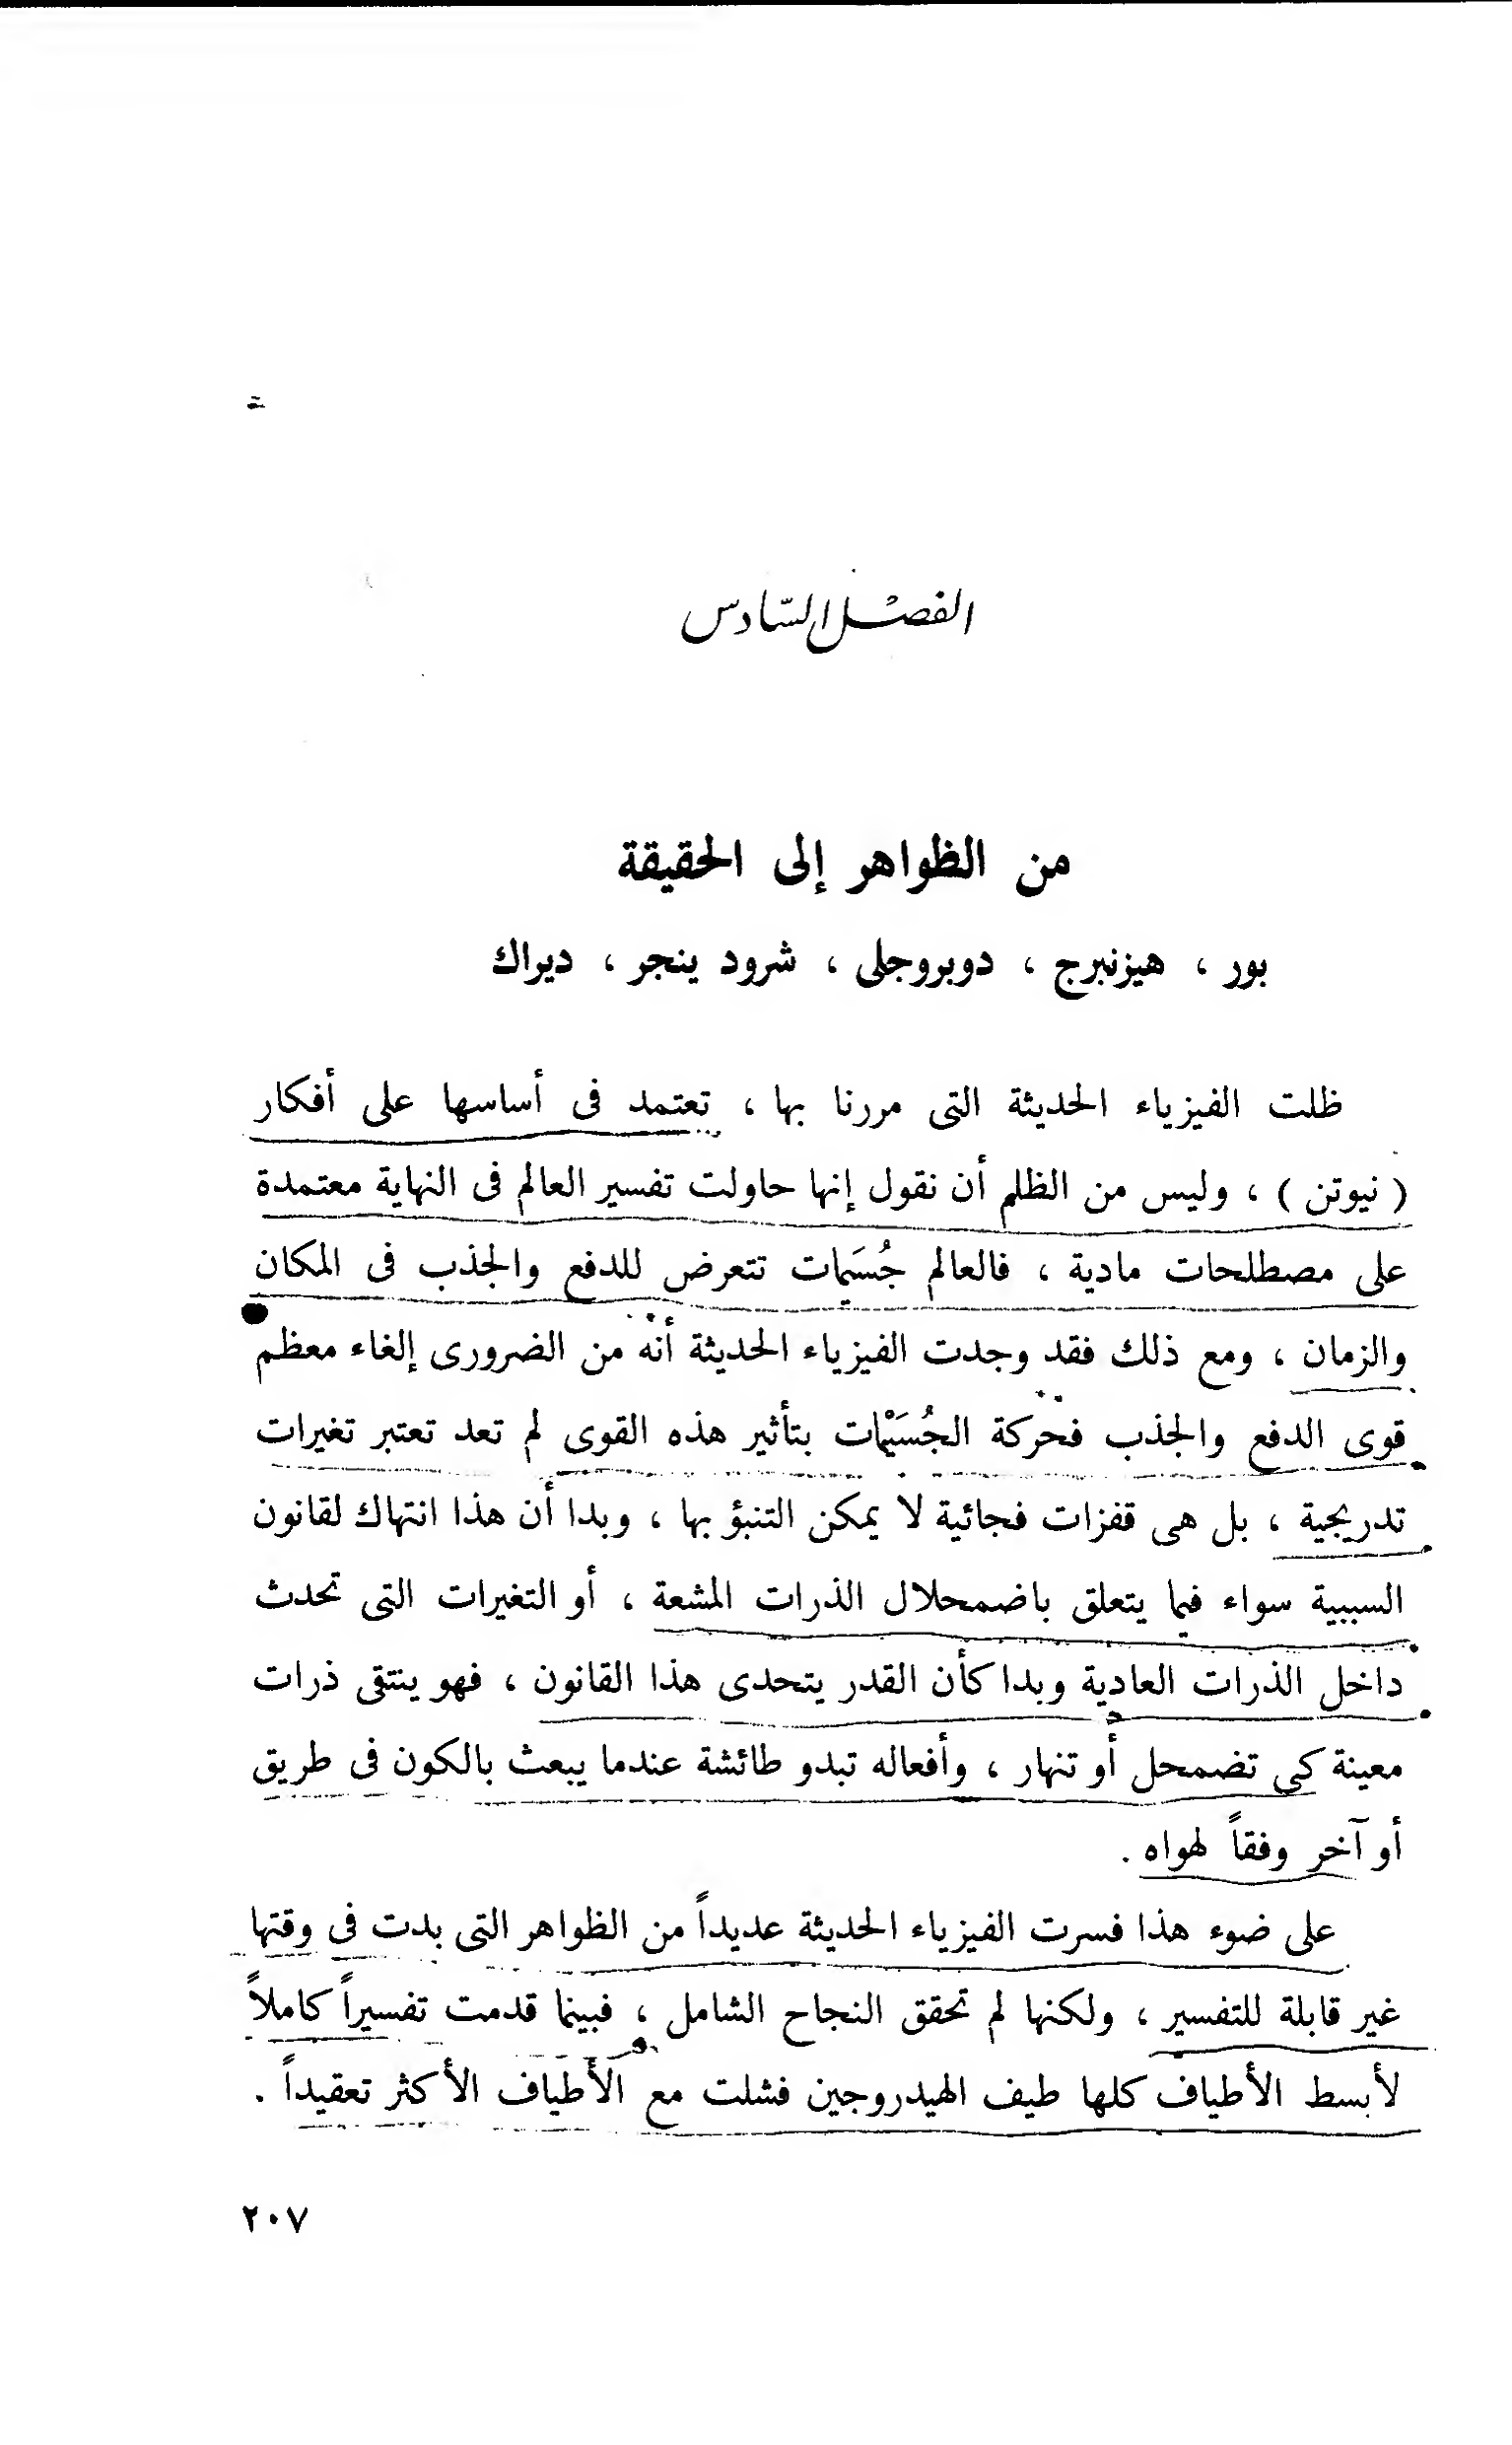 الفصل السادس
من الظواهر إلى الحقيقة
بور ، هيزنبرج ، دوبروجلى ، شرود ينجر ، ديراك
ظلت الفيزياء الحديثة التى مررنا بها ، تعتمد فى أساسها على أفكار
( نيوتن ) ، وليس من الظلم أن نقول إنها حاولت تفسير العالم فى النهاية معتمدة
على مصطلحات مادية ، فالعالم جُسَيمات تتعرض للدفع والجذب فى المكان
والزمان ، ومع ذلك فقد وجدت الفيزياء الحديثة أنه من الضرورى إلغاء معظم
قوى الدفع والجذب فحركة الجُسَيْمات بتأثير هذه القوى لم تعد تعتبر تغيرات
تدريجية ، بل هى قفزات فجائية لا يمكن التنبؤ بها ، وبدا أن هذا انتهاك لقانون
السببية سواء فيما يتعلق باضمحلال الذرات المشعة ، أو التغيرات التى تحدث
داخل الذرات العادية وبدا كأن القدر يتحدى هذا القانون ، فهو ينتقى ذرات
معينة كى تضمحل أو تنهار ، وأفعاله تبدو طائشة عندما يبعث بالكون فى طريق
أو آخر وفقاً لهواه .
على ضوء هذا فسرت الفيزياء الحديثة عديداً من الظواهر التى بدت فى وقتها
غير قابلة للتفسير ، ولكنها لم تحقق النجاح الشامل ، فبينما قدمت تفسيراً كاملاً
لأبسط الأطياف كلها طيف الهيدروجين فشلت مع الأطياف الأكثر تعقيداً .
٢٠٧